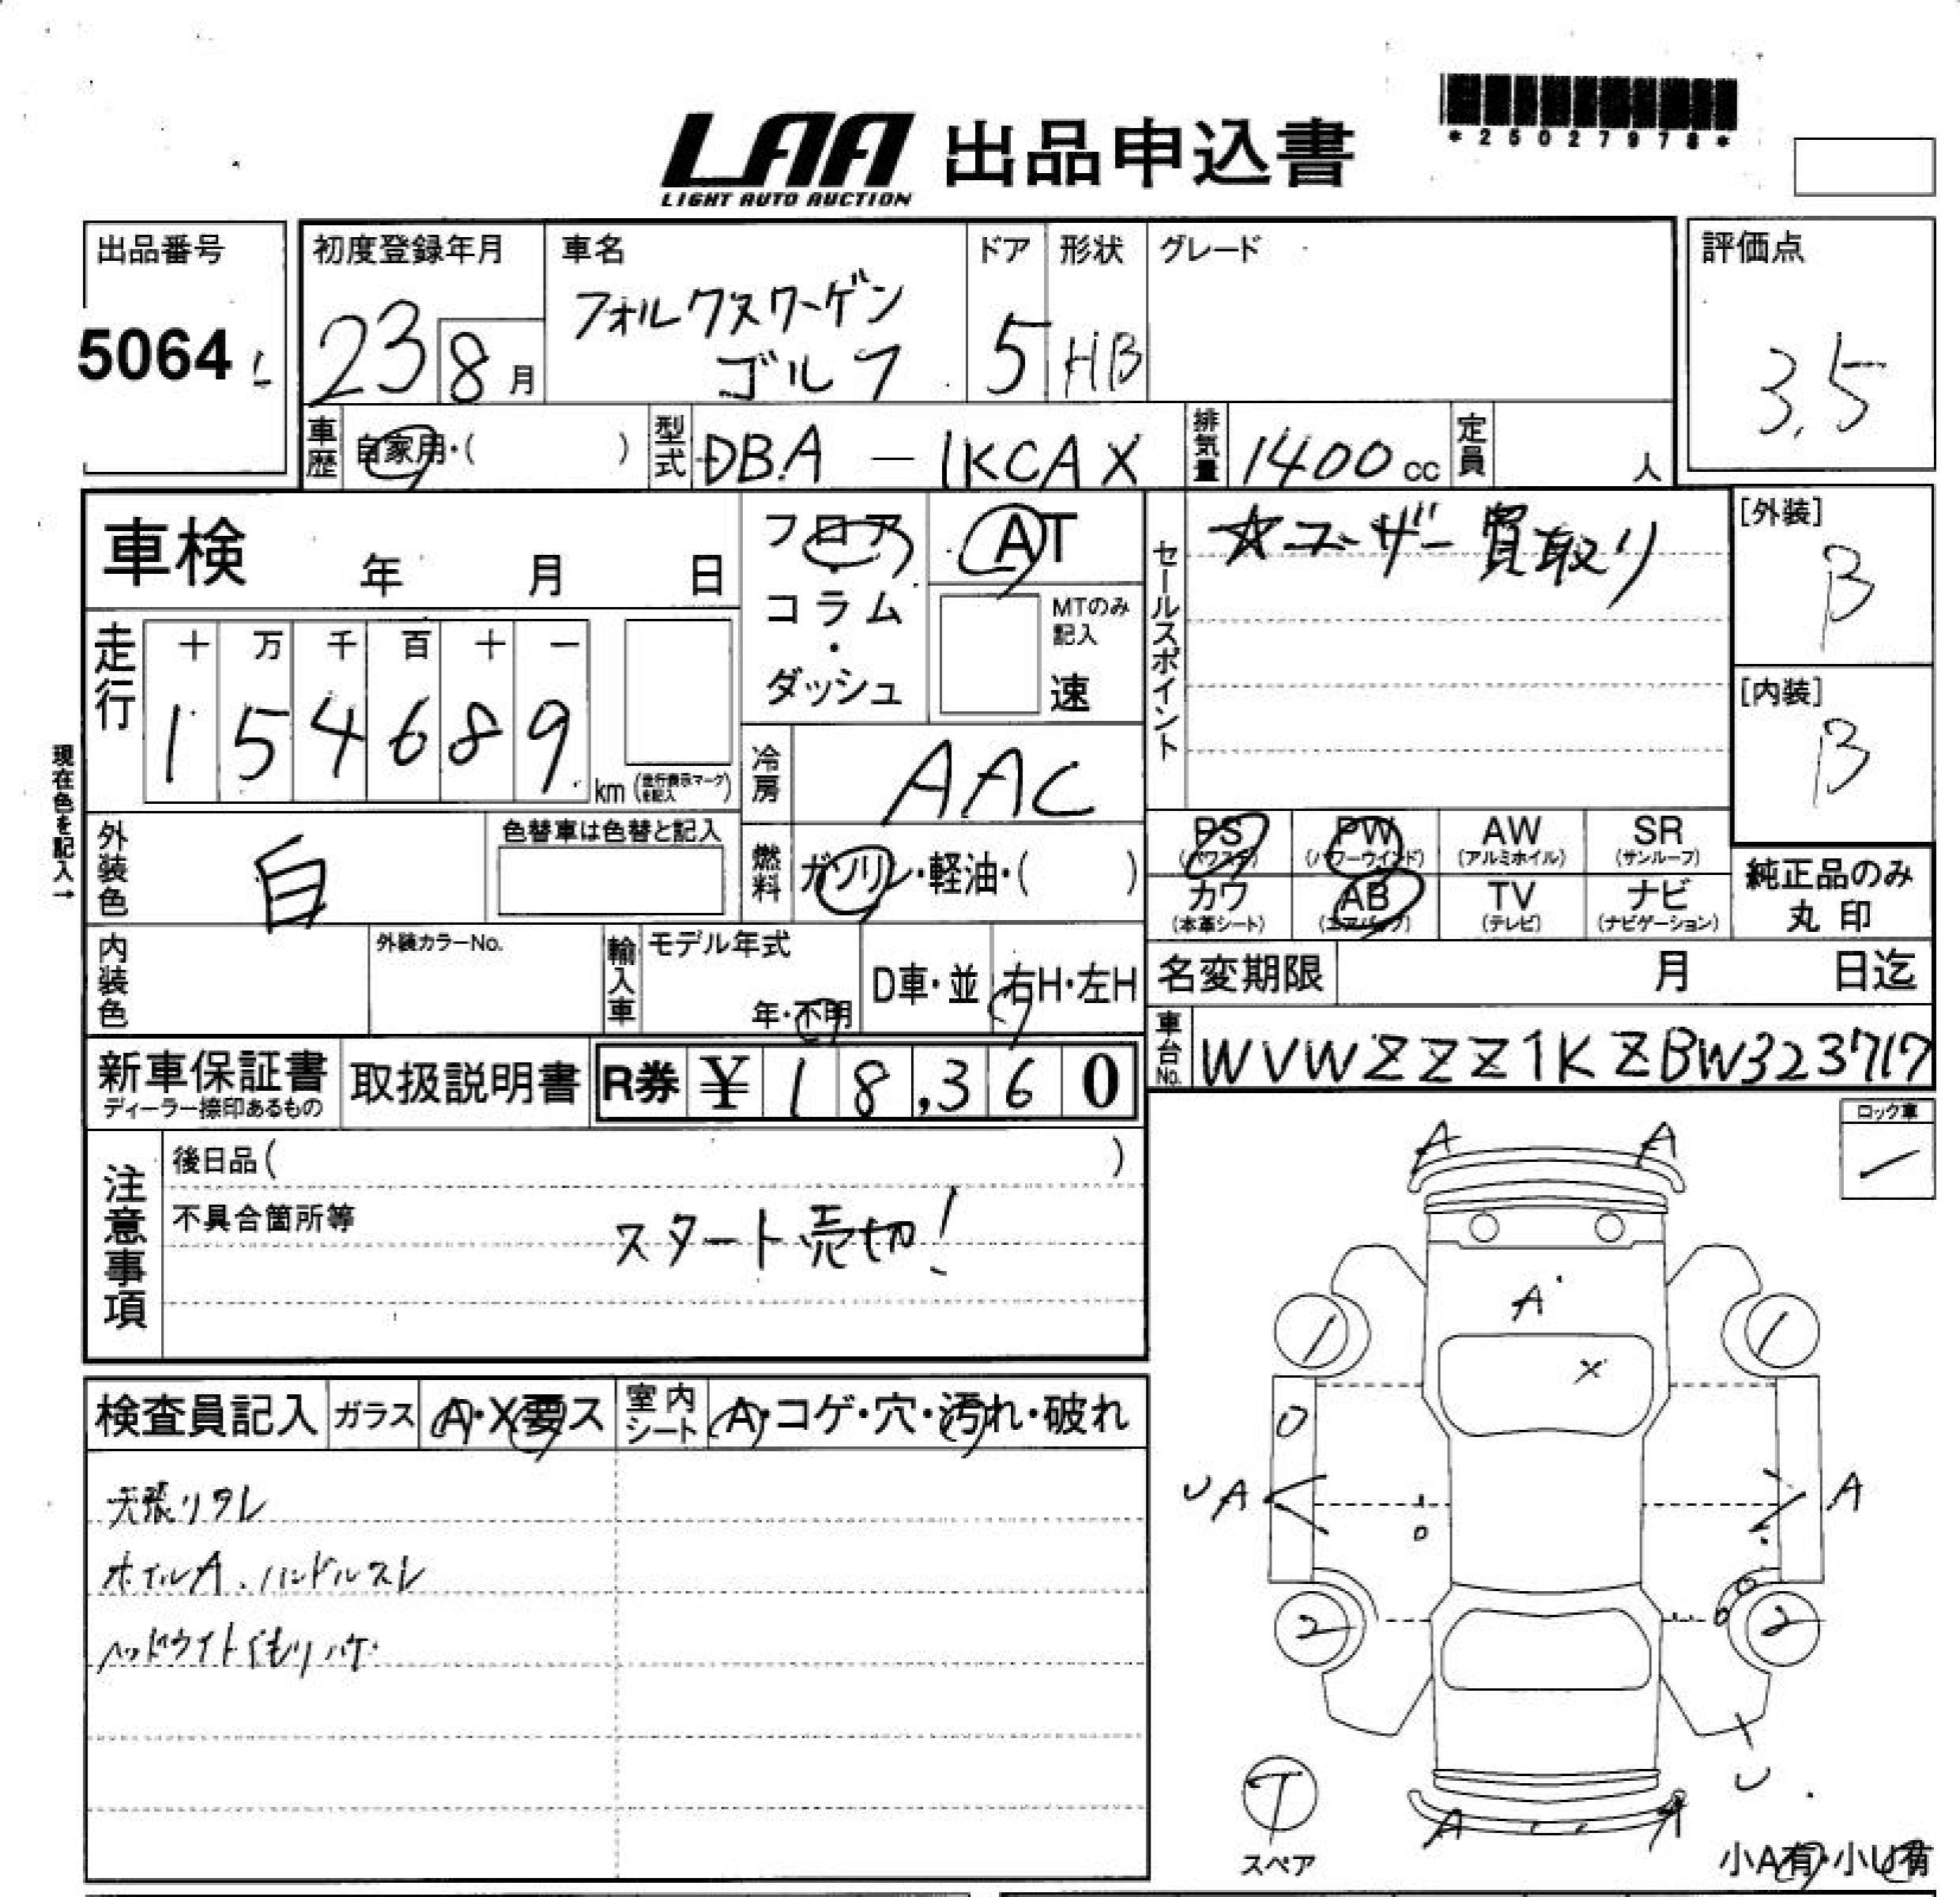 *25027978*
LAA 出品申込書
LIGHT AUTO AUCTION
出品番号
5064
初度登録年月
23 8月
車名
フォルクスワーゲン
ゴルフ
ドア
5
形状
HB
グレード
評価点
3.5
車歴 自家用・( )
型式 DBA-1KCAX
排気量 1400cc
定員 人
車検 年 月 日
フロア・コラム・ダッシュ
AT
MTのみ記入
速
セールスポイント
☆ユーザー買取り
[外装]
B
[内装]
B
走行
十 万 千 百 十 一
1 5 4 6 8 9 km (走行表示マークを記入)
現在色を記入→
冷房 AAC
外装色 白
色替車は色替と記入
燃料 ガソリン・軽油・( )
PS (パワステ)
PW (パワーウインド)
AW (アルミホイル)
SR (サンルーフ)
カワ (本革シート)
AB (エアバッグ)
TV (テレビ)
ナビ (ナビゲーション)
純正品のみ
丸印
内装色
外装カラーNo.
輸入車
モデル年式
年・不明
D車・並
右H・左H
名変期限 月 日迄
車台No. WVWZZZ1KZBW323717
新車保証書
ディーラー捺印あるもの
取扱説明書
R券 ¥18,360
ロック車
注意事項
後日品( )
不具合箇所等
スタート売切!
検査員記入
ガラス A・X要ス
室内シート A・コゲ・穴・汚れ・破れ
天張りタレ
ホイルA、ハンドルスレ
ヘッドライトくもりハゲ
A A
A
X
1 1
UA A
2 2
U
T
スペア
A A
小A有・小U有